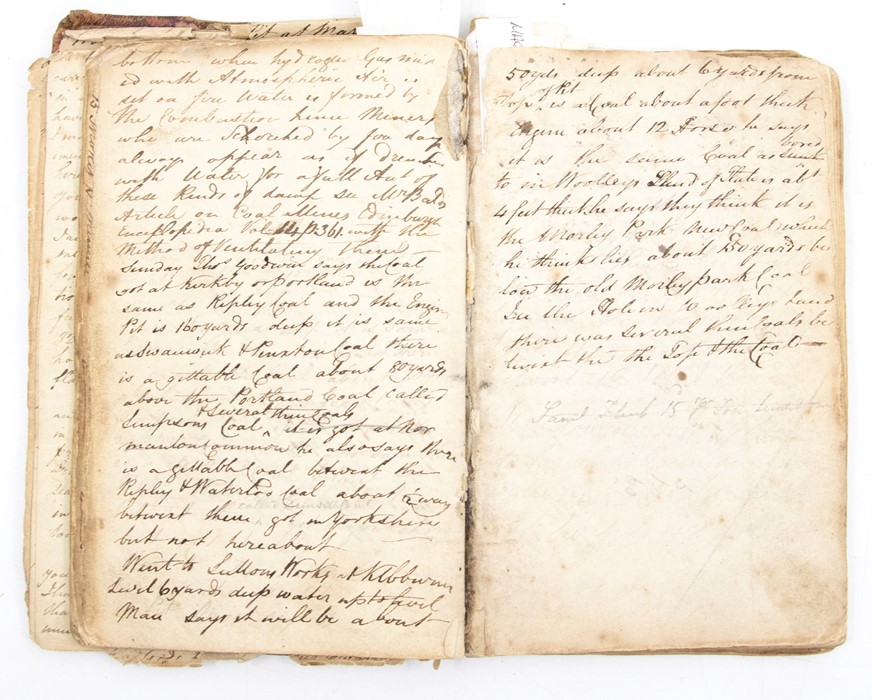 bottom when hydrogen Gas mix
ed with Atmospheric Air is
set on fire Water is formed by
the Combustion hence Miners
who are Schorched by fire damp
always appear as if drench
with Water for a full Act of
these Kinds of damp see Mr Bald's
Article on Coal Mines Edinburgh
Encyclopedia Vol 14 P 361 with the
Method of Ventilating them
Sunday Thos Goodwin says the Coal
got at Kirkby or Portland is the
same as Ripley Coal and the Engine
Pit is 160 yards deep it is same
as Swanwick & Pinxton Coal there
is a gittable Coal about 80 yards
above the Portland Coal called
& Several thin Coals
Simpsons Coal it is got at Nor
manton Common he also says there
is a gittable Coal betwixt the
Ripley & Waterloo Coal about 1/2 way
betwixt them got in Yorkshire
but not hereabout
Went to Works at
Level 6 yards deep water up to level
Man says it will be about
50 yds deep about 6 yards from
Top is a Coal about a foot thick
Engine about 12 Horse he says
it is the same Coal as
bored
to in Woolleys Land is abt
4 feet thick he says they think it is
the Morley Park New Coal which
he thinks lies about 150 yards be
low the old Morley park Coal
In the Land
there was several thin Coals be
twixt the Top & the Coal